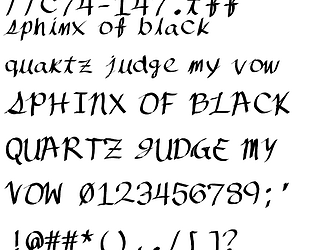 77C74-147.tff
sphinx of black
quartz judge my vow
SPHINX OF BLACK
QUARTZ JUDGE MY
VOW 0123456789;'
!@##*(),./[]?